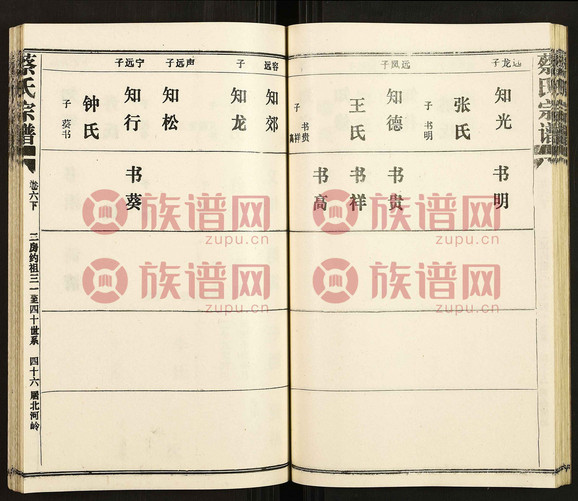 蔡氏宗谱
远龙子
知光
张氏
子 书明
书明
远凤子
知德
王氏
子 书贵
高祥
书贵
书祥
书高
容远
子
知郊
知龙
声远子
知松
宁远子
知行
钟氏
子 葵书
书葵
蔡氏宗谱
卷六下
三房约祖三一至四十世系
四十六
居北河岭
族谱网
zupu.cn
族谱网
zupu.cn
族谱网
zupu.cn
族谱网
zupu.cn